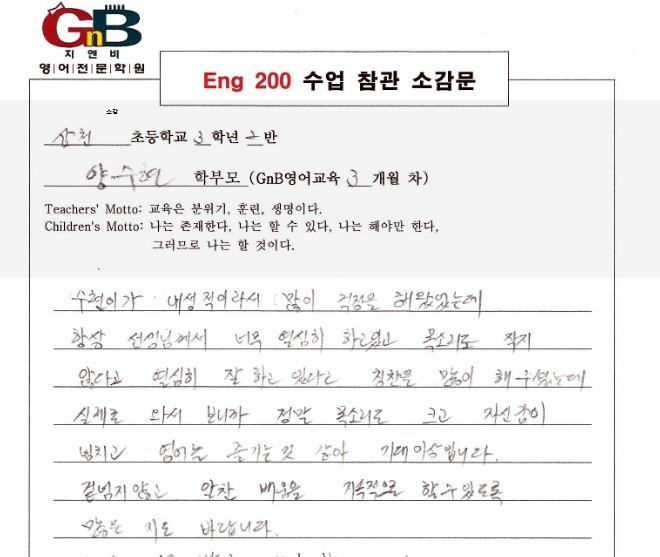 GnB
지앤비
영|어|전|문|학|원
Eng 200 수업 참관 소감문
소감
삼천 초등학교 3 학년 2 반
양수현 학부모 (GnB영어교육 3 개월 차)
Teachers' Motto: 교육은 분위기, 훈련, 생명이다.
Children's Motto: 나는 존재한다, 나는 할 수 있다, 나는 해야만 한다,
그러므로 나는 할 것이다.
수현이가 내성적이라서 많이 걱정을 해왔었는데
항상 선생님께서 너무 열심히 하고있고 목소리도 작지
않다고 열심히 잘 하고 있다고 칭찬을 많이 해주셨는데
실제로 와서 보니까 정말 목소리도 크고 자신감이
넘치고 영어를 즐기는 것 같아 기대이상입니다.
겉넘지않고 알찬 배움을 지속적으로 할 수 있도록
많은 지도 바랍니다.